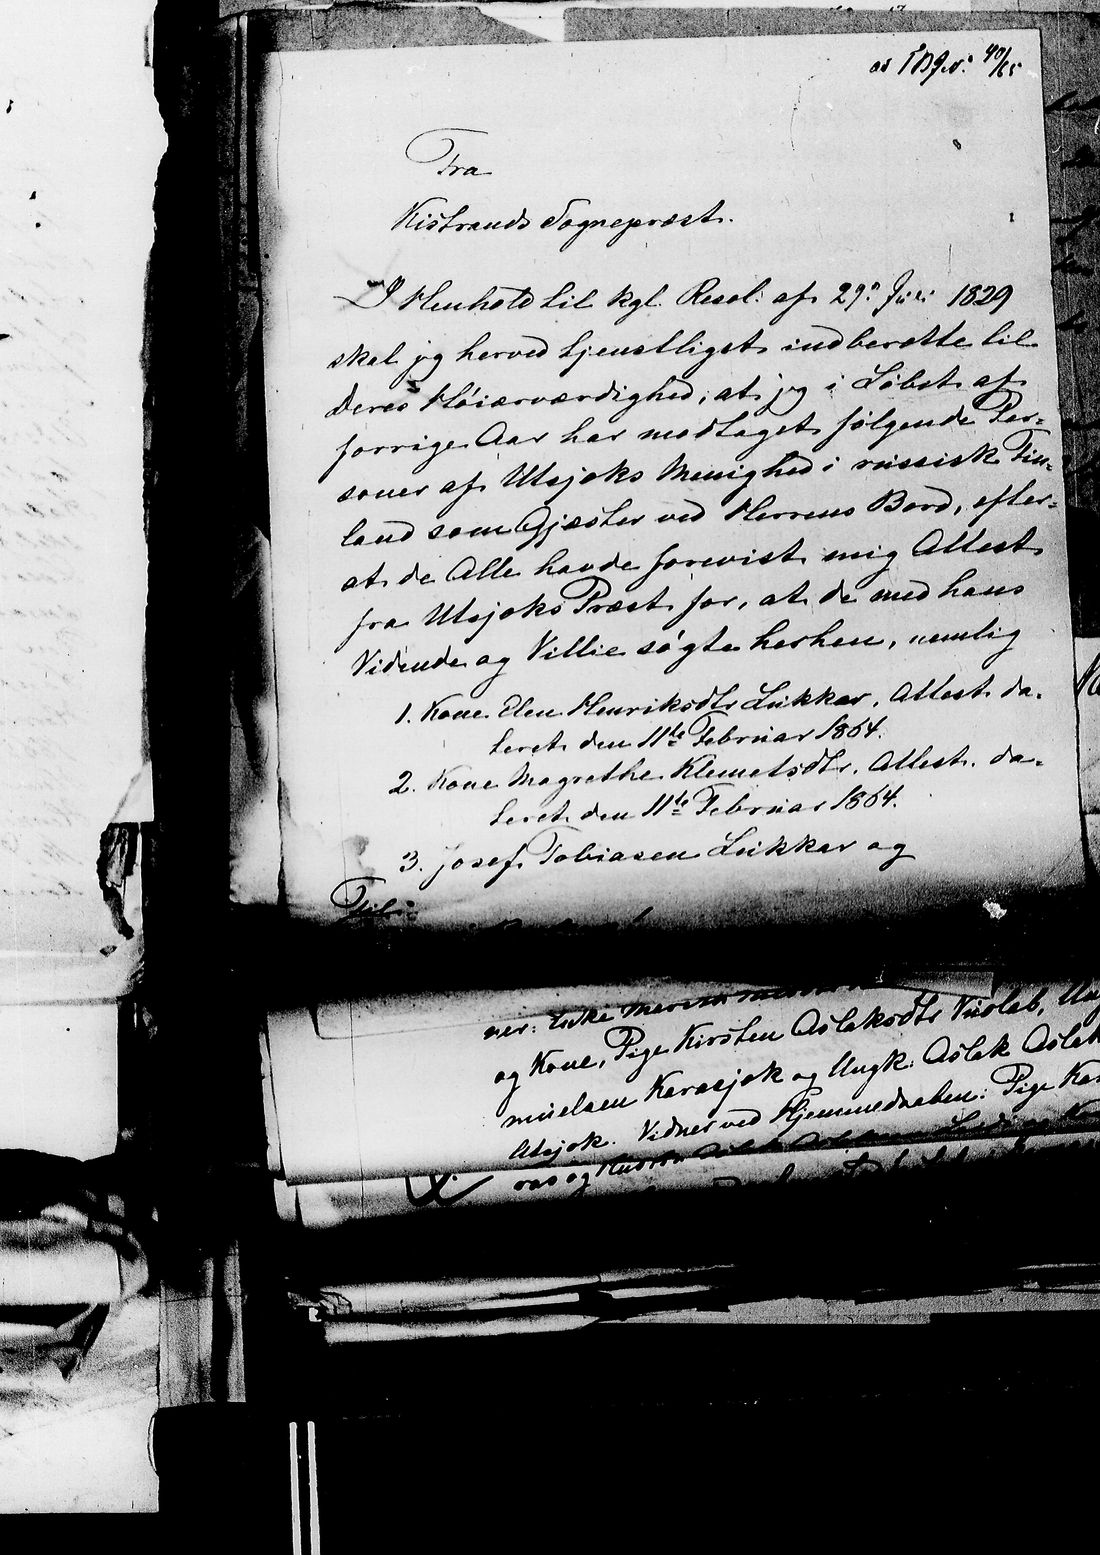 40/65
Fra
Kistrands Sognepræst.
I Henhold til kgl. Resol: af 29de Juli 1829
skal jeg herved tjenstligst indberette til
Deres Høiærværdighed, at jeg i Løbet af
forrige Aar har modtaget følgende Per=
soner af Utsjoks Menighed i russisk Fin=
land som Gjæster ved Herrens Bord, efter=
at de Alle havde forevist mig Attest
fra Utsjoks Præst for, at de med hans
Vidende og Villie søgte herhen, nemlig
1. Kone Elen Henriksdtr Lukkar, Attest da=
teret den 11te Februar 1864.
2. Kone Magrethe Klemetsdtr, Attest da=
teret den 11te Februar 1864.
3. Josef Tobiasen Lukkar og
Til
ner: Enke
og Kone, Pige Kirsten Aslaksdtr
muelsen Karasjok og Ungk: Aslak Aslak
Utsjok. Vidner ved Hjemmedaaben: Pige